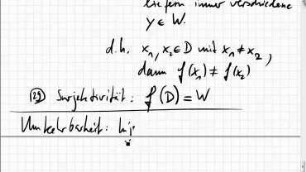 liefern immer verschiedene
y ∈ W.
d.h. x₁, x₂ ∈ D mit x₁ ≠ x₂,
dann f(x₁) ≠ f(x₂)
(29) Surjektivität: f(D) = W
Umkehrbarkeit: bij